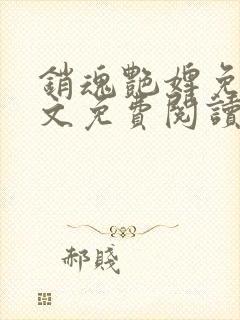 銷魂艷婢免
文免費閱讀
郝賤